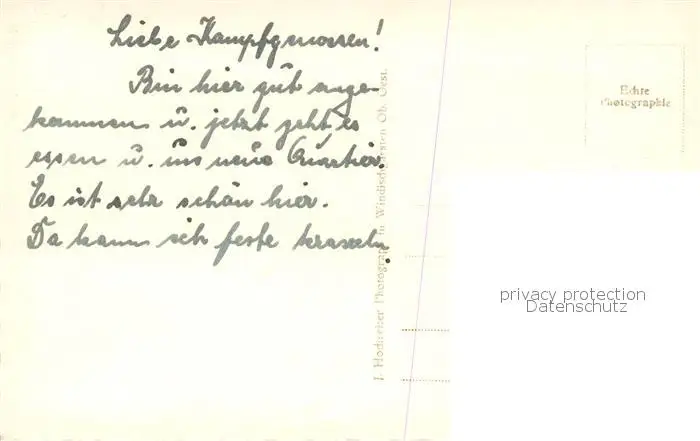 Liebe Kampfgenossen!
Bin hier gut ange-
kommen u. jetzt geht es
essen u. ins neue Quartier.
Es ist sehr schön hier.
Da kann ich feste kraxeln.
J. Hodnreiber Photograph in Windischgarsten Ob. Oest.
Echte
Photographie
privacy protection
Datenschutz